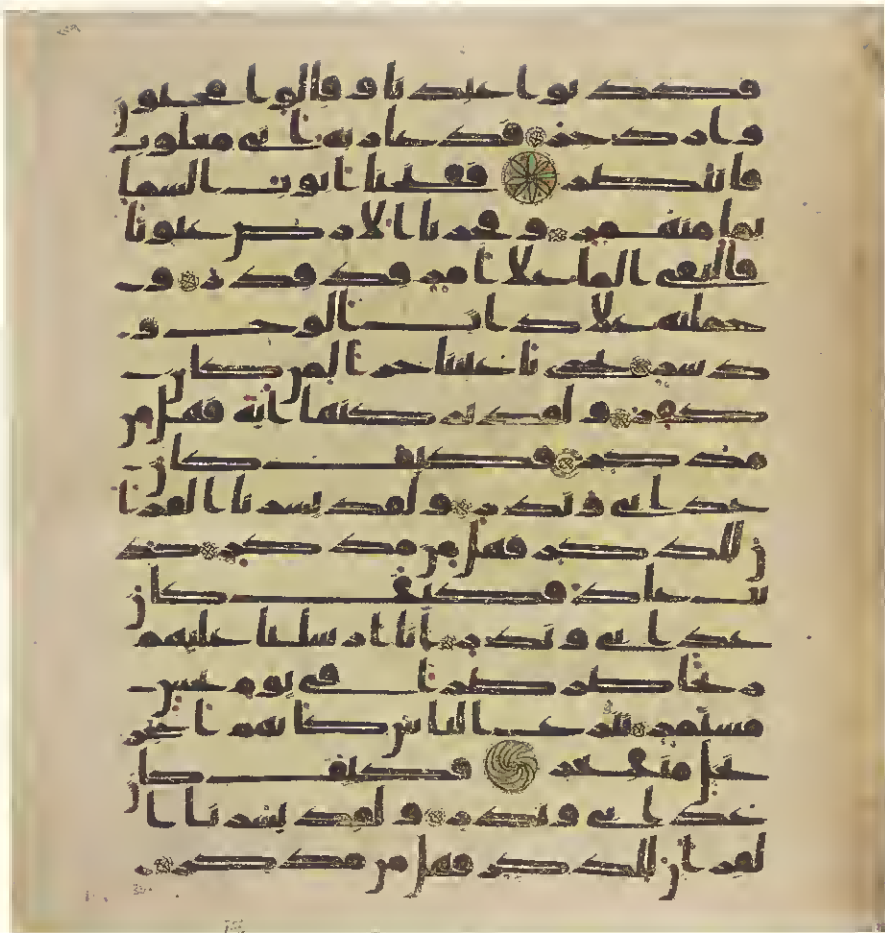 فكذبوا عبدنا وقالوا مجنون
وازدجر فدعا ربه انى مغلوب
فانتصر ففتحنا ابوب السما
بما منهمر وفجرنا الارض عيونا
فالتقى الما على امر قد قدر و
حملنه على ذات الوح و
دسر تجرى باعيننا جزا لمن كان
كفر ولقد تركنها اية فهل من
مدكر فكيف كان
عذابى ونذر ولقد يسرنا القرا
ن للذكر فهل من مدكر كذ
بت عاد فكيف كان
عذابى ونذر انا ارسلنا عليهم
ريحا صرصرا فى يوم نحس
مستمر تنزع الناس كانهم اعجاز
نخل منقعر فكيف كان
عذابى ونذر ولقد يسرنا ا
لقران للذكر فهل من مدكر